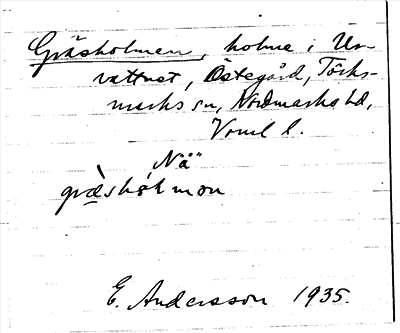 Gräsholmen, holme i Ur-
vattnet, Östegård, Töcks-
marks sn, Nordmarks hd,
Vrml l.
Nä"
E. Andersson 1935.